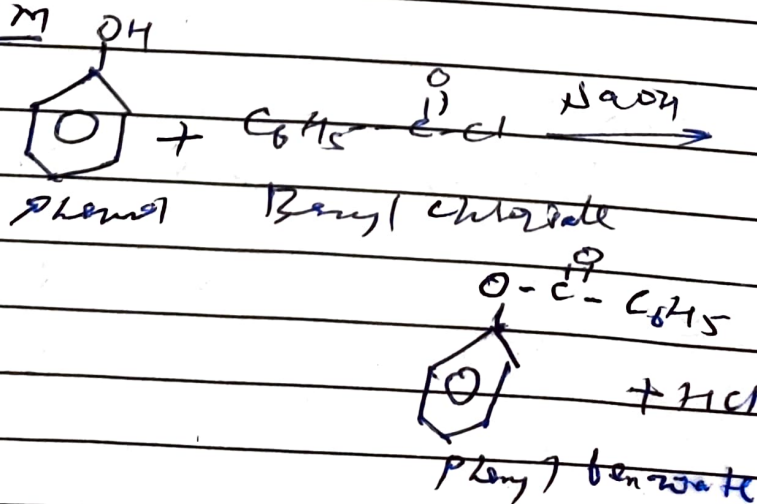 m
OH
O
+ C6H5-C-Cl NaOH
Phenol Benzyl chloride
O
O-C-C6H5
+ HCl
Phenyl benzoate